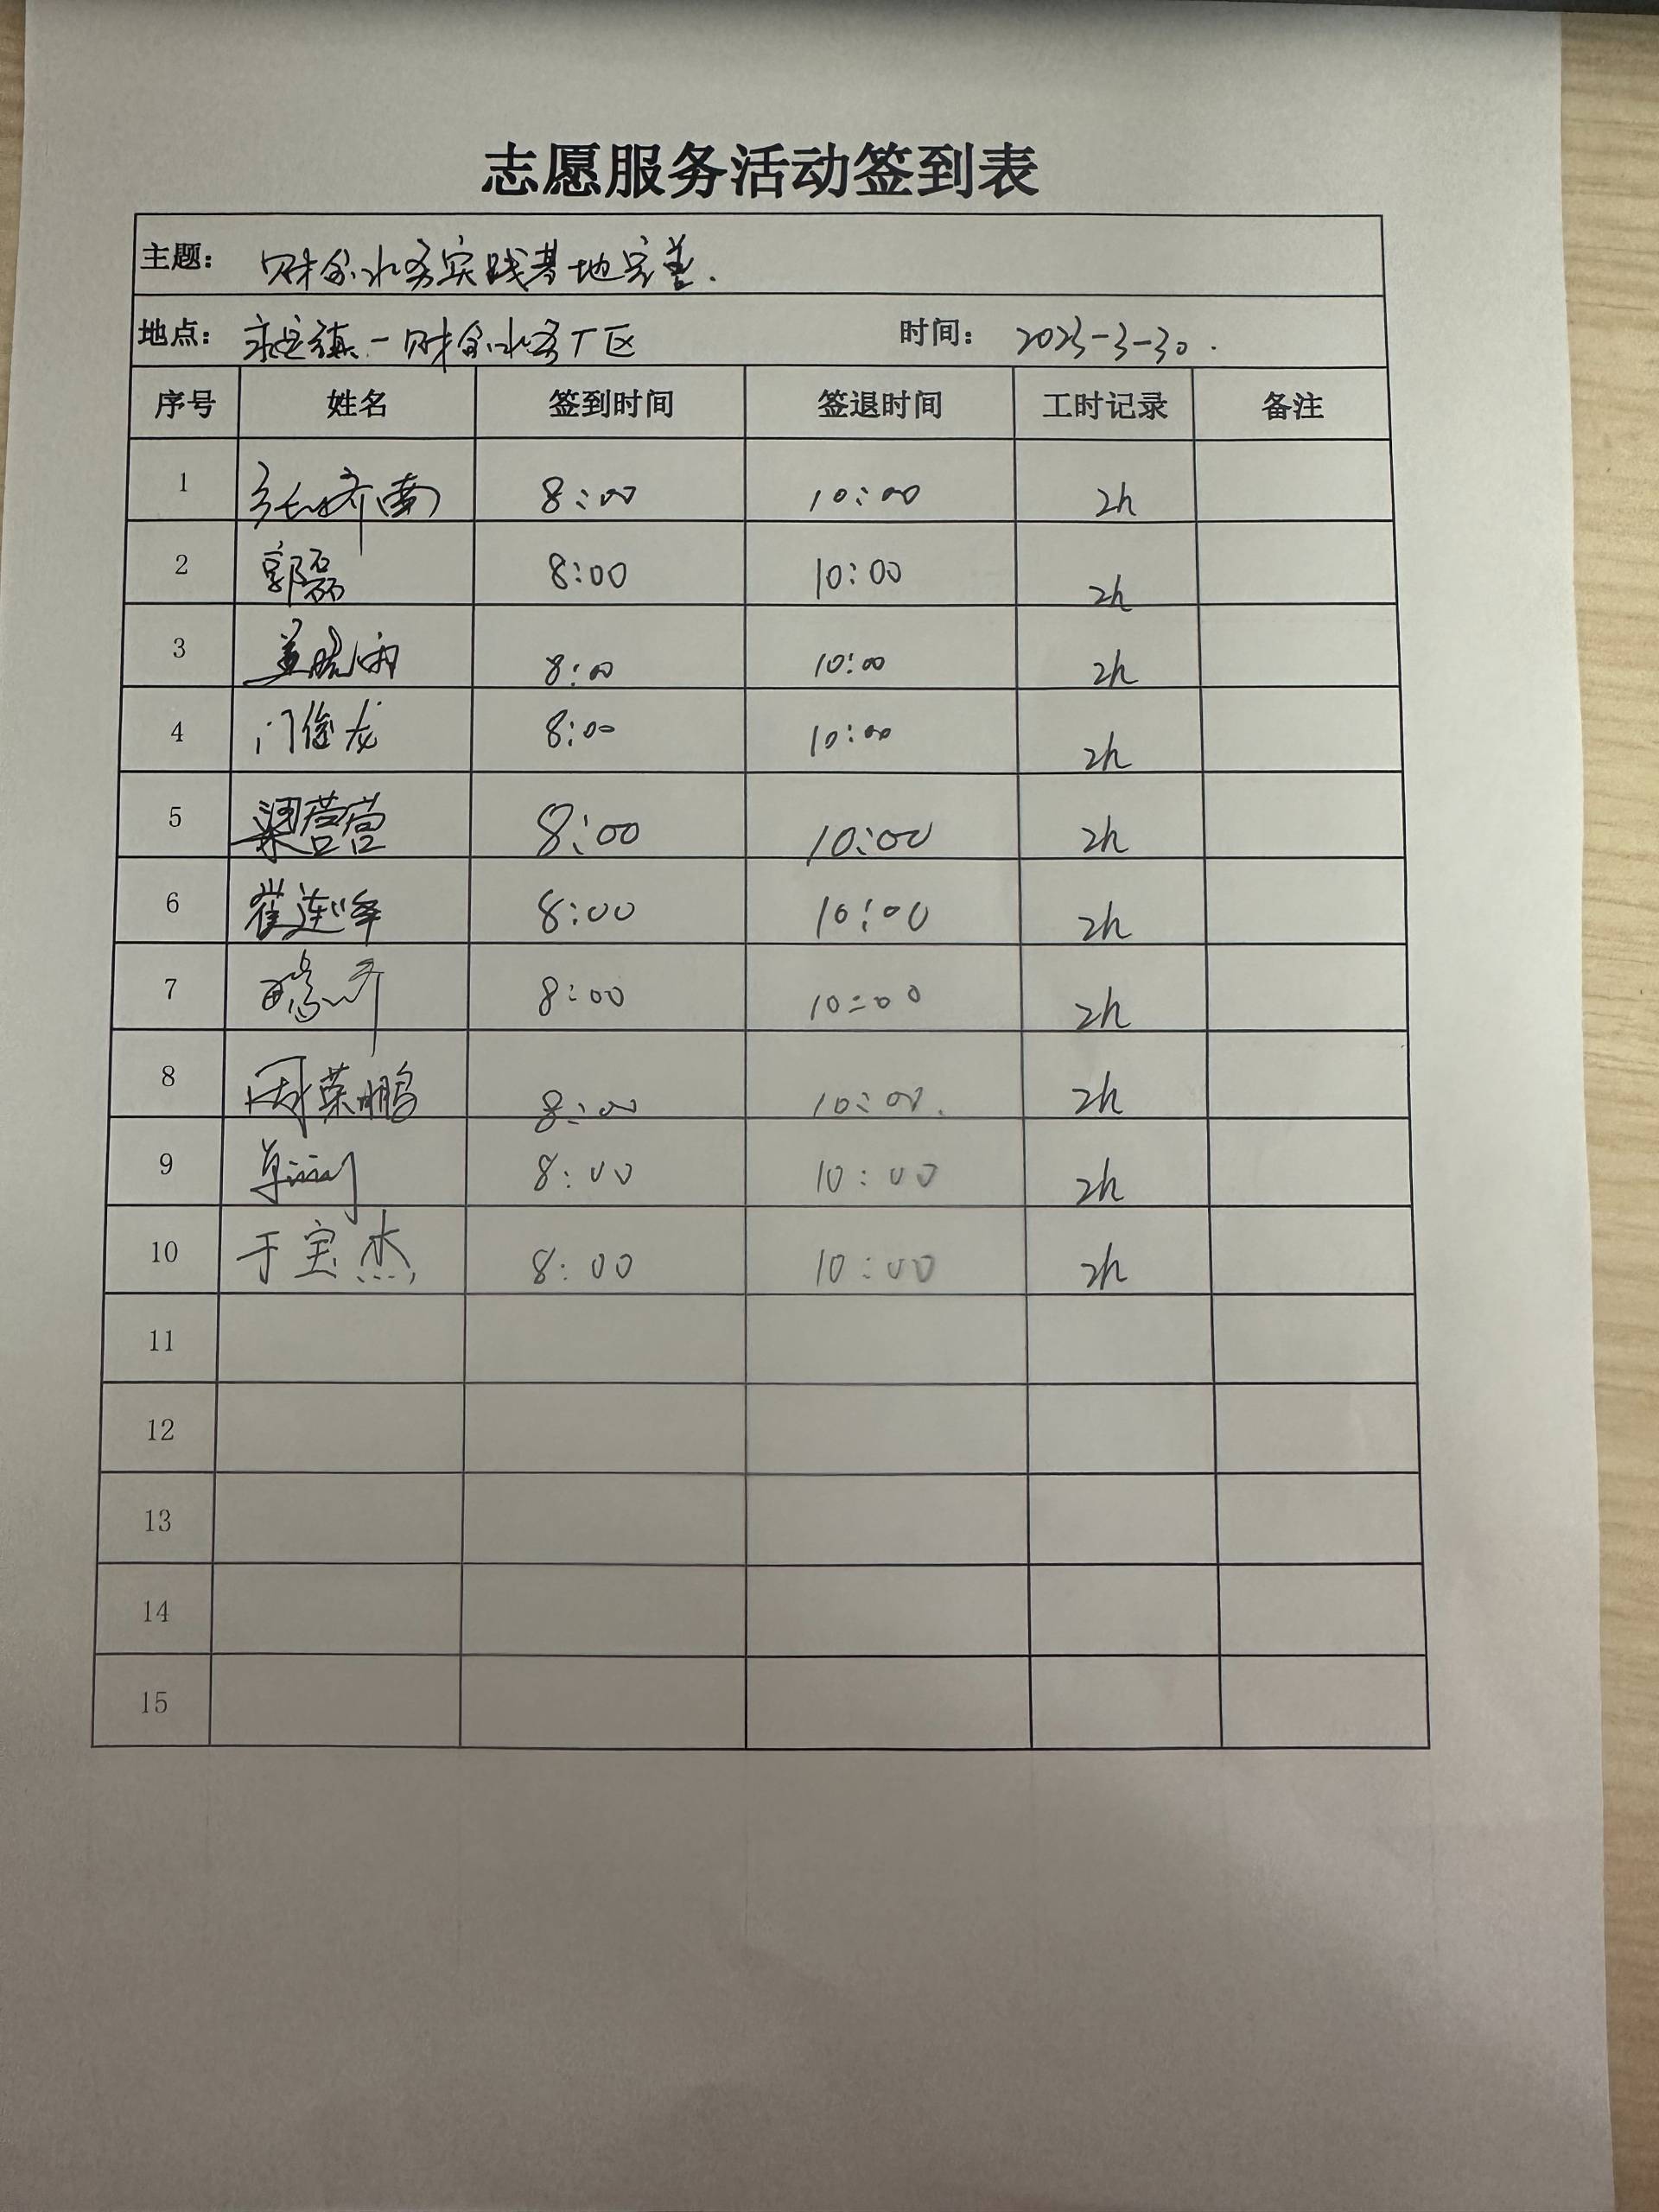 志愿服务活动签到表
主题： 财金水务实践基地完善.
地点： 永安镇-财金水务厂区 时间： 2023-3-30.
序号 姓名 签到时间 签退时间 工时记录 备注
1 8:00 10:00 2h
2 郭磊 8:00 10:00 2h
3 8:00 10:00 2h
4 门俊龙 8:00 10:00 2h
5 梁营营 8:00 10:00 2h
6 崔连峰 8:00 10:00 2h
7 8:00 10:00 2h
8 周荣鹏 8:00 10:00. 2h
9 8:00 10:00 2h
10 于宝杰 8:00 10:00 2h
11
12
13
14
15